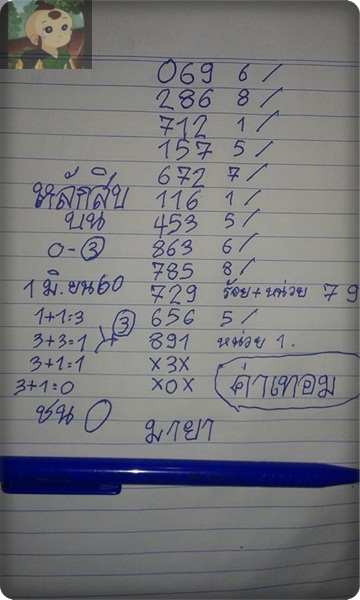 069 6 /
286 8 /
712 1 /
157 5 /
672 7 /
หลักสิบ 116 1 /
บน 453 5 /
0-3 863 6 /
785 8 /
1 มิ.ยน 60 729 ร้อย+หน่วย 79
1+1=3 3 656 5 /
3+3=1 891 หน่วย 1.
3+1=1 x3x
3+1=0 x0x ค่าเทอม
ชน 0
มายา